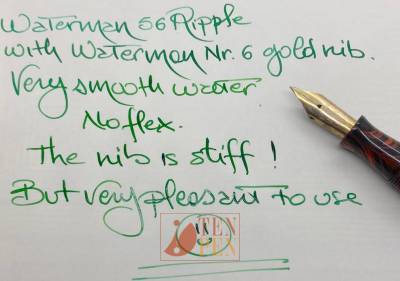 Waterman 56 Ripple
with Waterman Nr. 6 gold nib.
Very smooth writer
No flex.
The nib is stiff !
But very pleasant to use
TEN
PEN